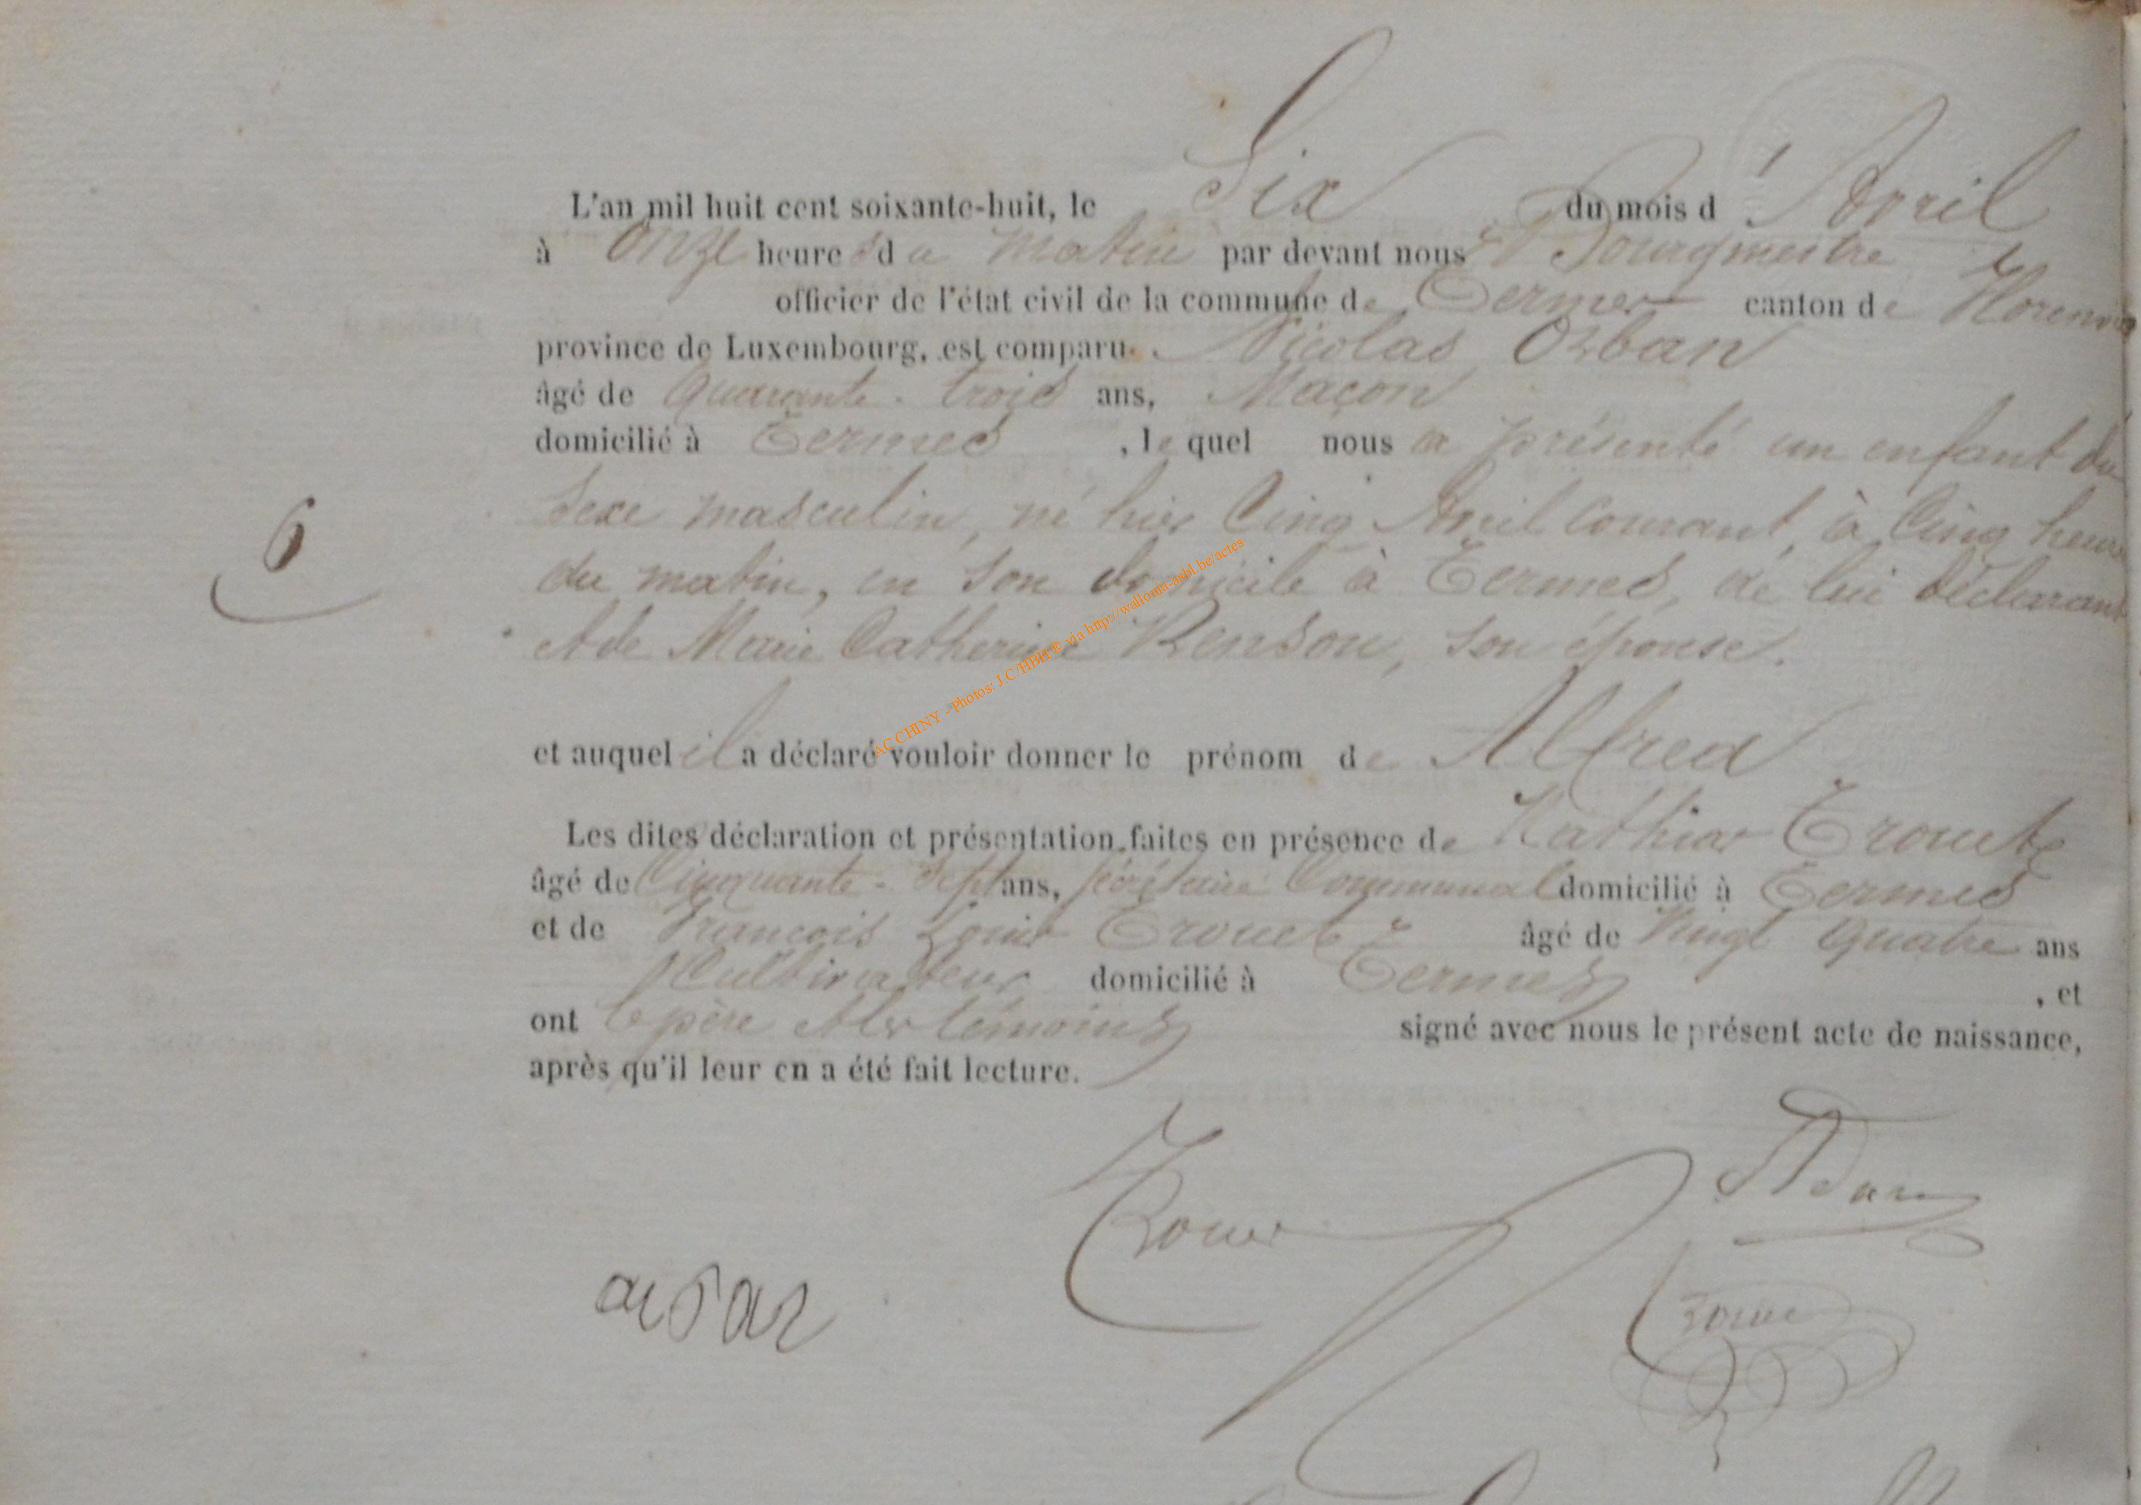 L'an mil huit cent soixante-huit, le Six du mois d'Avril
à Onze heures du matin par devant nous Bourgmestre
officier de l'état civil de la commune de Termes canton de Florenville
province de Luxembourg, est comparu Nicolas Orban
âgé de Quarante-trois ans, Maçon
domicilié à Termes, lequel nous a présenté un enfant du
Sexe masculin, né hier Cinq Avril courant, à Cinq heures
6
du matin, en son domicile à Termes, de lui déclarant
et de Marie Catherine Renson, son épouse.
ACCHINY - Photos: J.C HBH® via http://wallonia-asbl.be/actes
et auquel il a déclaré vouloir donner le prénom de Alfred
Les dites déclaration et présentation faites en présence de Mathias Crouet
âgé de Cinquante-Sept ans, secrétaire Communal domicilié à Termes
et de François Louis Crouet âgé de Vingt quatre ans
Cultivateur domicilié à Termes, et
ont le père et les témoins signé avec nous le présent acte de naissance,
après qu'il leur en a été fait lecture.
Adam